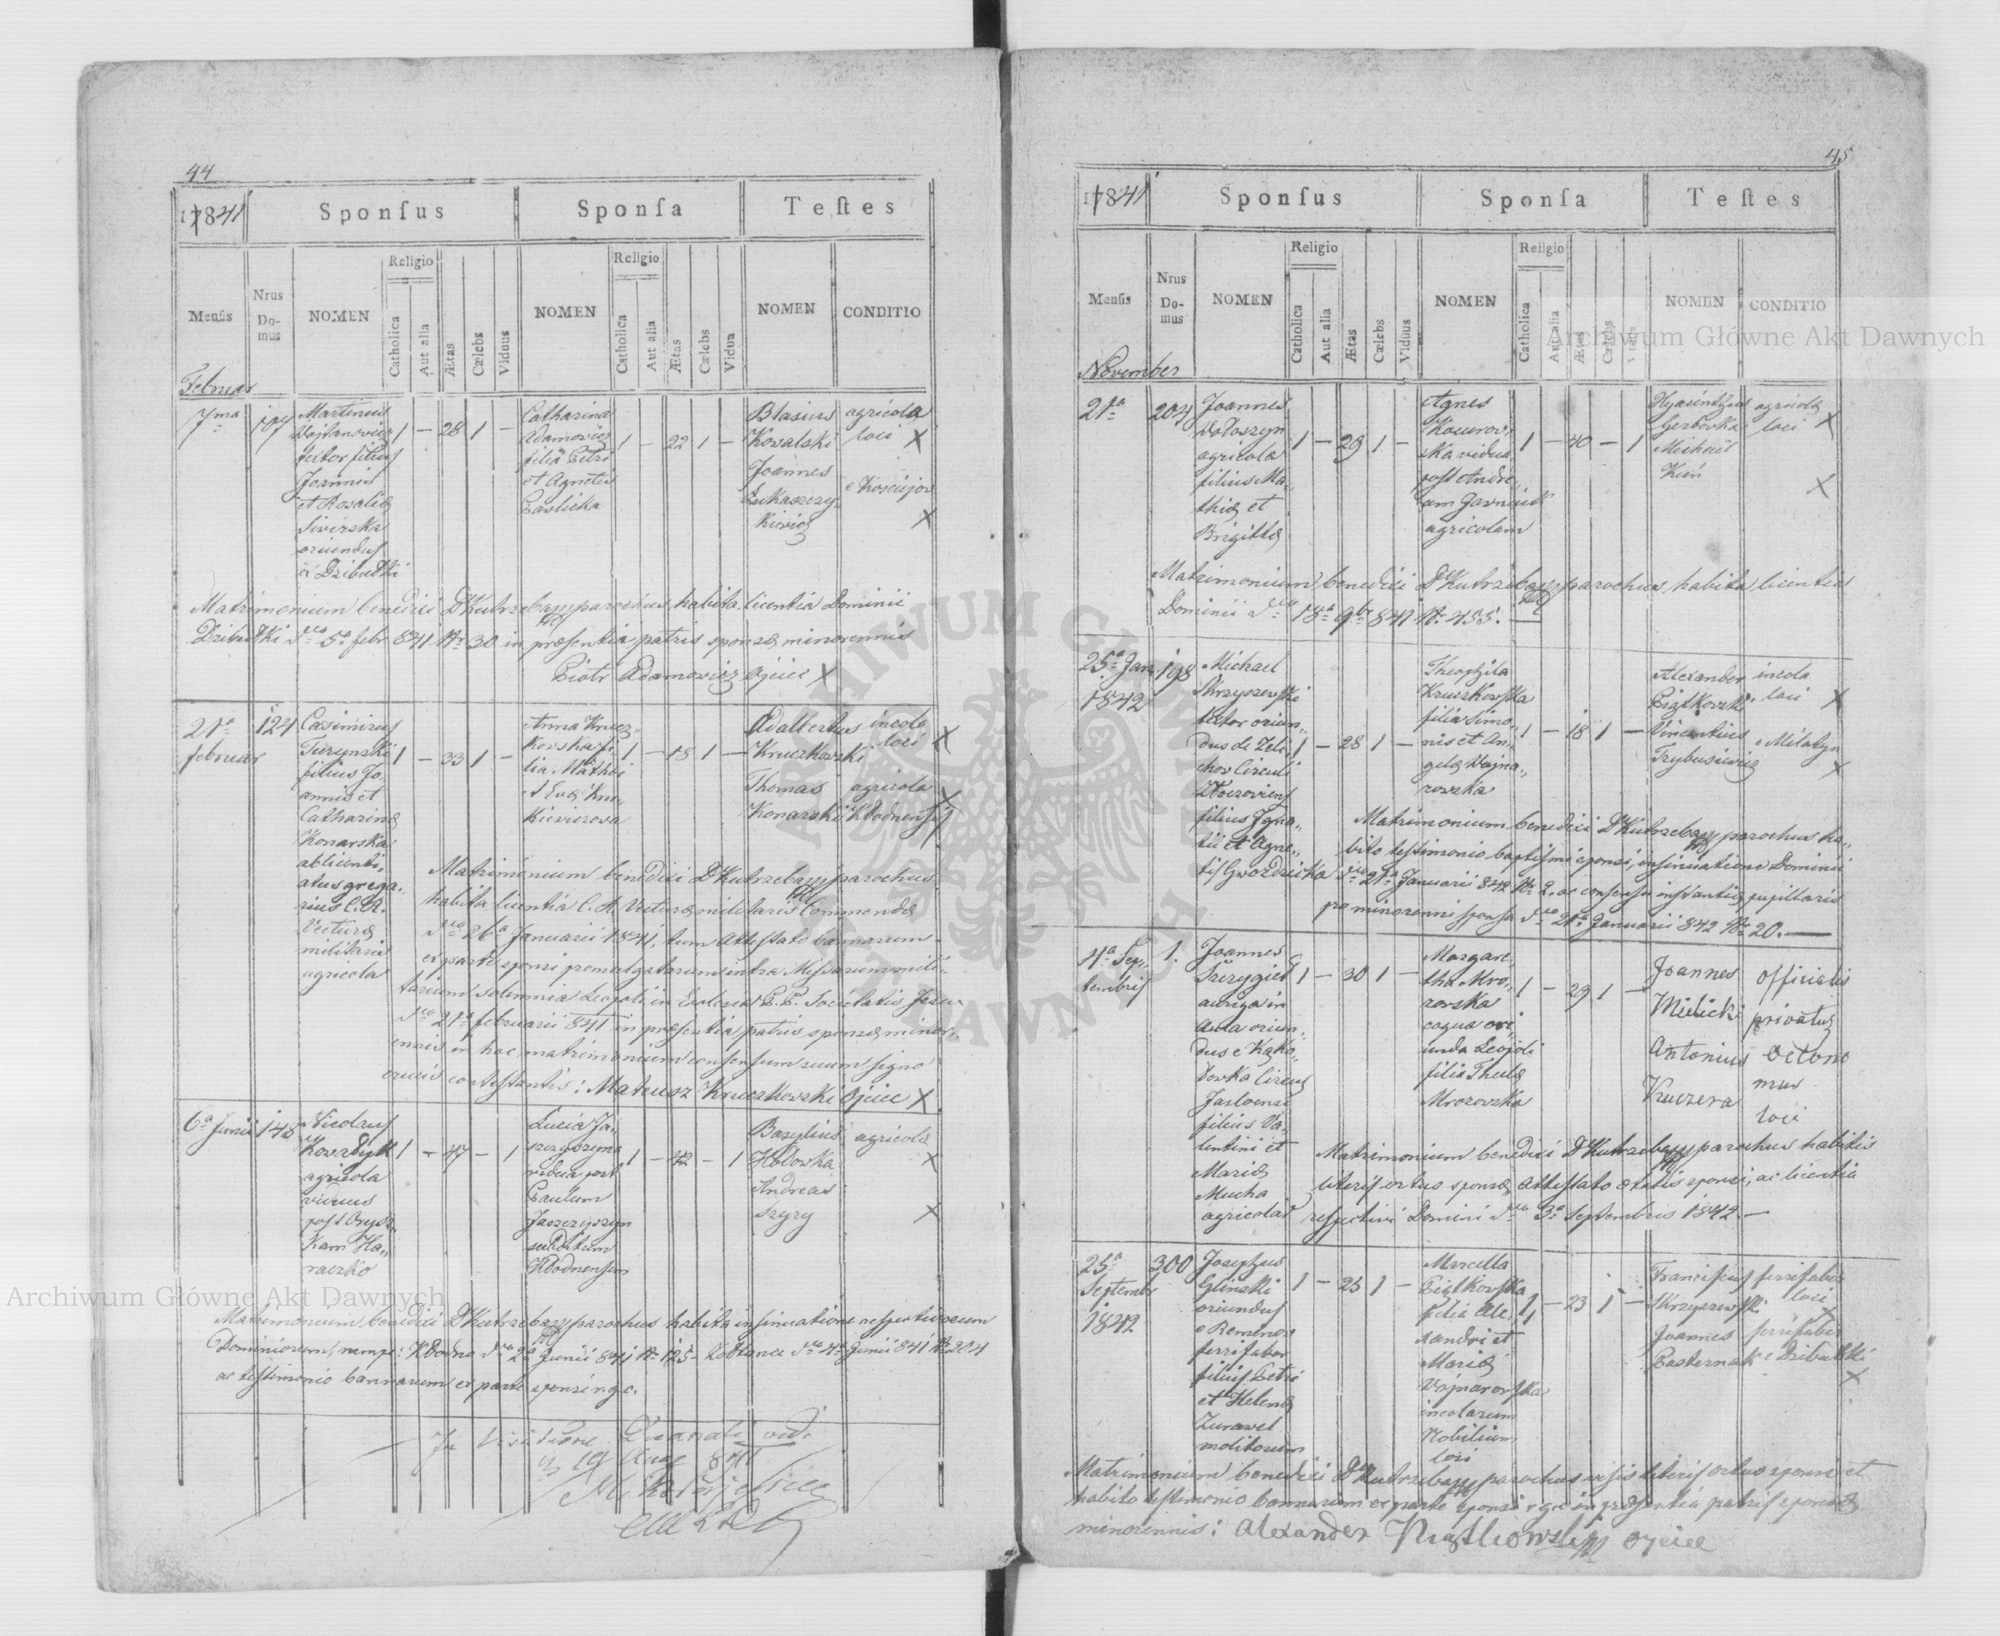 44
1841
Sponſus
Sponſa
Teſtes
Menſis
Nrus Domus
NOMEN
Religio
Catholica
Aut alia
Ætas
Cælebs
Viduus
NOMEN
Religio
Catholica
Aut alia
Ætas
Cælebs
Vidua
NOMEN
CONDITIO
Februar
7ma
Martinus
textor filius
Joannis
et Rosaliæ
Siverska
oriundus
e Dzibułki
1 — 28 1 —
Catharina
Adamovicz
filia Petri
et Agnetis
Pavlicka
1 — 22 1 —
Blasius agricola
Kovalski loci X
Joannes
Łukaszey-
kievicz X
Matrimonium benedixi D Kutrzeba parochus, habita licentia Dominii
Dzibułki dto 5a febr 841 Nr 30 in præsentia patris sponsæ minorennis
Piotr Adamowicz Ojciec X
21a
februar
124
Casimirus
Turynski
filius Jo-
annis et
Catharinæ
Konarska
ablicenti-
atus grega-
rius C. R.
Vecturæ
militaris
agricola
1 — 33 1 —
Anna Krucz-
kovska fi-
lia Mathæi
et Evæ
1 — 18 1 —
Adalbertus incola
Kruczkovski loci X
Thomas agricola
Konarski Kłodnensis X
Matrimonium benedixi D Kutrzeba parochus
habita licentia C. R. Vecturæ militaris Commendæ
dto 26a Januarii 1841, tum Attestato bannorum
ex parte sponsi promulgatarum intra Missarum mili-
tarium solemnia Leopoli in Ecclesia P. P. Societatis Jesu
dto 21a februarii 841 in præsentia patris sponsæ minor-
ennis in hoc matrimonium consensum suum signo
crucis contestantis: Mateusz Kruczkowski Ojciec X
6a Junii
148
Nicolaus
agricola
viduus
post Orysz-
kam Ha-
raczko
1 — 47 — 1
Lucia Ja-
szczyszyna
vidua post
Paulum
Jaszczyszyn
subditum
Kłodnensem
1 — 42 — 1
Basylius agricolæ
Hołovka X
Andreas
Szyry X
Matrimonium benedixi D Kutrzeba parochus habita insinuatione respectivorum
Dominiorum, nempe: Kłodno dto 2a Junii 841 Nr 125 - Zołtance dto 4a Junii 841 Nr 204
ac testimonio bannorum ex parte sponsi r. g. c.
In Visitatione Decanali vidi
19 Aug 841
45
1841
Sponſus
Sponſa
Teſtes
Menſis
Nrus Domus
NOMEN
Religio
Catholica
Aut alia
Ætas
Cælebs
Viduus
NOMEN
Religio
Catholica
Aut alia
Ætas
Cælebs
NOMEN
CONDITIO
November
21a
204
Joannes
Wołoszyn
agricola
filius Ma-
thiæ et
Brigittæ
1 — 29 1 —
Agnes
Kocurov-
ska vidua
post Andre-
am
agricolam
1 — 40 — 1
Hyacinthus agricolæ
loci X
Michael
Kuń X
Matrimonium benedixi D Kutrzeba parochus, habita licentia
Dominii dto 18a 9br 841 Nr 455.
25a Jan
1842
198
Michael
Skrzyszewski
textor oriun-
dus de Zele-
chov Circuli
Złoczoviens
filius Igna-
tii et Agne-
tis Gwozdzicka
1 — 28 1 —
Theophila
Kruczkovska
filia Simo-
nis et An-
gelæ Vojna-
rovska
1 — 18 1 —
Alexander incola
Piątkovski loci X
Vincentius e Milatyn
Trybusiewicz X
Matrimonium benedixi D Kutrzeba parochus ha-
bito testimonio baptismi sponsi, insinuatione Dominii
dto 21a Januarii 842 Nr 2. ac consensu instantiæ pupillaris
pro minorenni sponsa dto 21a Januarii 842 Nr 20.
4a Sep-
tembris
1.
Joannes
Szczygieł
auriga in
Aula oriun-
dus e Kąko-
lovka Circuli
Jasloensi
filius Va-
lentini et
Mariæ
Mucha
agricolar
1 — 30 1 —
Margare-
tha Mro-
zovska
coqua ori-
unda Leopoli
filia Theclæ
Mrozovska
1 — 29 1 —
Joannes officialis
Milicki privatus
Antonius oeconomus
Kuczera loci
Matrimonium benedixi D Kutrzeba parochus habitis
literis ortus sponsæ, Attestato ætatis sponsi, ac licentia
respectivi Domini dto 3a Septembris 1842.
25a
Septembr
1842
300
Josephus
Glinski
oriundus
e Remenov
ferrifaber
filius Petri
et Helenæ
Zuravel
molitorum
1 — 25 1 —
Marcella
Piątkovska
filia Ale-
xandri et
Mariæ
Vojnarovska
incolarum
Nobilium
loci
1 — 23 1 —
Franciscus ferrifaber
Skrzyszewski loci X
Joannes ferrifaber
Pasternak e Dzibułki X
Matrimonium benedixi D Kutrzeba parochus visis literis ortus sponsi et
habito testimonio bannorum ex parte sponsi r. g. c. in præsentia patris sponsæ
minorennis: Alexander Piątkowski ojciec
Archiwum Główne Akt Dawnych
Archiwum Główne Akt Dawnych
ARCHIWUM GŁÓWNE AKT DAWNYCH